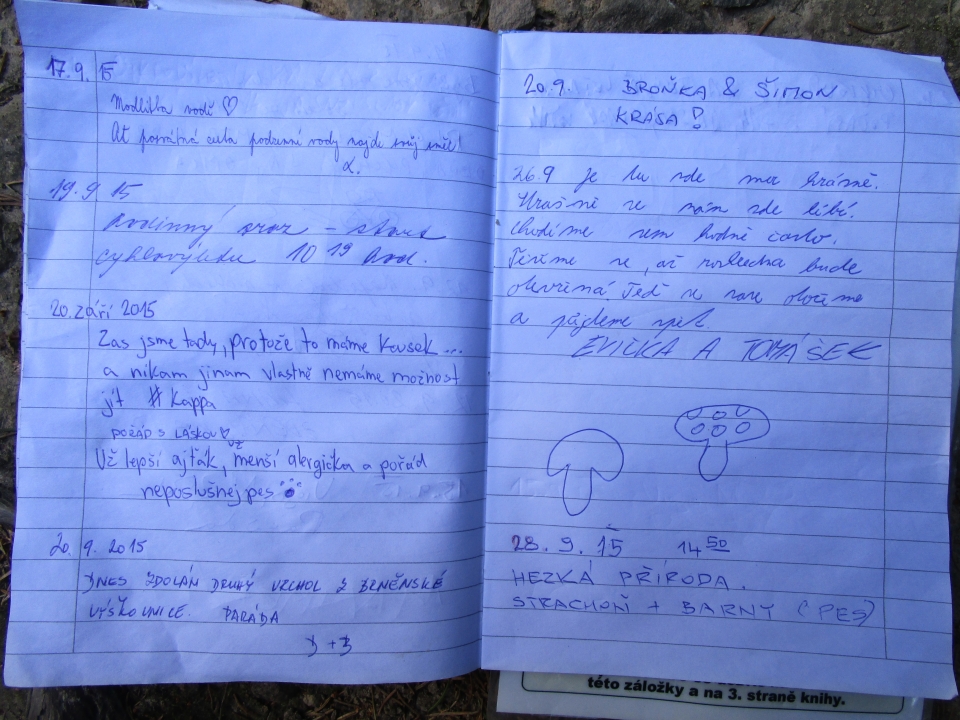 17.9. 15
Modlitba vodě ♡
Ať pomátná duše podzemní vody najde svůj směr!
L.
19.9.15
Rodinný sraz - start
cyklovýletu 10 19 hod.
20. září 2015
Zas jsme tady, protože to máme kousek ...
a nikam jinam vlastně nemáme možnost
jít # Kappa
POŘÁD S LÁSKOU ♡
už
Už lepší ajťák, menší alergička a pořád
neposlušnej pes
20. 9. 2015
DNES ZDOLÁN DRUHÝ VRCHOL Z BRNĚNSKÉ
VÝŠKOVNICE. PARÁDA
20.9. BROŇKA & ŠIMON
KRÁSA!
26.9 je tu zde moc krásně.
Hrašně se nám zde líbí.
Chodíme sem hodně často.
Těšíme se, až rozhledna bude
otevřená. Teď se zase otočíme
a půjdeme zpět.
EVIČKA A TOMÁŠEK
28. 9. 15 14 50
HEZKÁ PŘÍRODA.
STRACHOŇ + BARNY (PES)
této záložky a na 3. straně knihy.